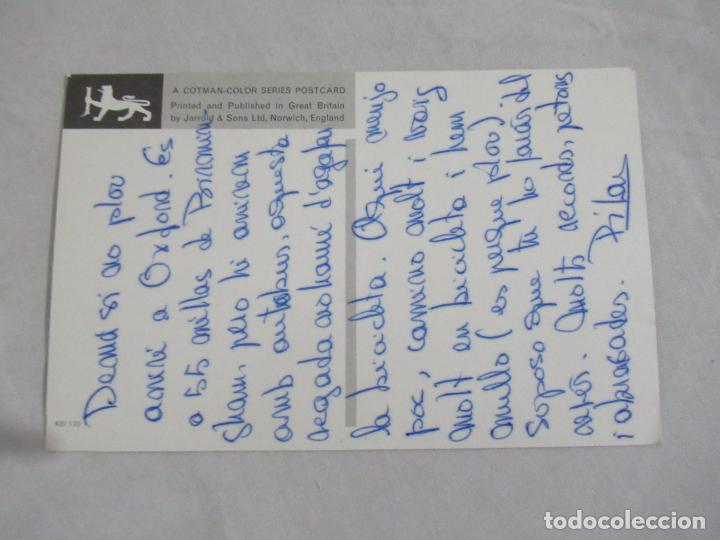 A COTMAN-COLOR SERIES POSTCARD
Printed and Published in Great Britain
by Jarrold & Sons Ltd, Norwich, England
Demà si no plou
aniré a Oxford. És
a 55 millas de Birmin-
sham, pero hi anirem
amb autobus, aquesta
vegada no hauré d'agafar
la bicicleta. Aqui menjo
poc, camino molt i vaig
molt en bicicleta i hem
mullo (es perque plou)
Suposo que tu ho faràs del
revés. Molts records, petons
i abraçades. Pilar
KBI 120
todocoleccion